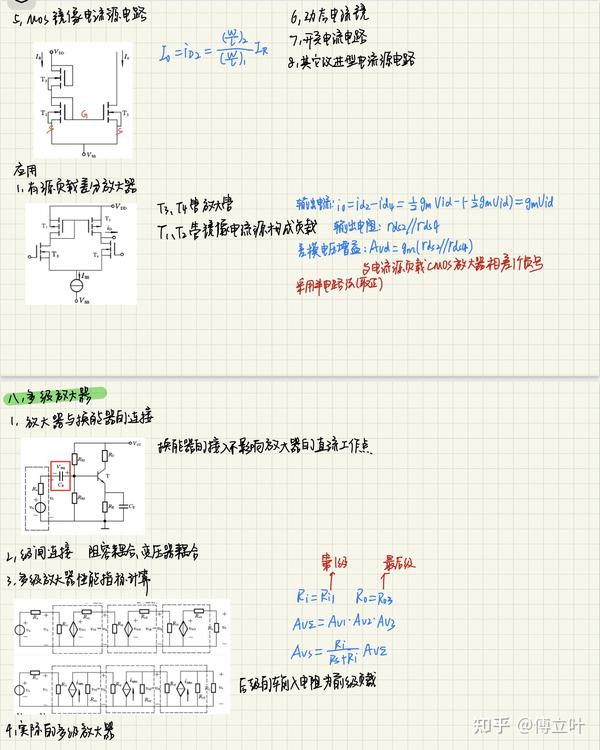 5、MOS镜像电流源电路
I₀=i_D2=(W/L)₂/(W/L)₁ I_R
6、动态电流镜
7、开关电流电路
8、其它改进型电流源电路
应用
1、有源负载差分放大器
T3、T4管放大管
T1、T2管镜像电流源构成负载
输出电流: i₀=id2-id4=½gmVid-(-½gmVid)=gmVid
输出电阻: rds2//rds4
差模电压增益: Avd=gm(rds2//rds4)
与电流源负载CMOS放大器相差1个负号
采用半电路法(取正)
八、多级放大器
1、放大器与换能器的连接
换能器的接入不影响放大器的直流工作点
2、级间连接 阻容耦合、变压器耦合
3、多级放大器性能指标计算
第1级 最后级
Ri=Ri1 Ro=Ro3
AvΣ=Av1·Av2·Av3
Avs=Ri/(Rs+Ri) AvΣ
后级的输入电阻为前级负载
4、实际的多级放大器
知乎 @傅立叶